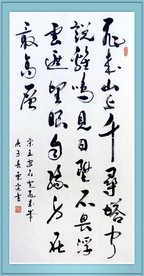 飛來山上千尋塔聞
說雞鳴見日昇不畏浮
雲遮望眼自緣身在
最高層
宋王安石登飛來峰
庚子書